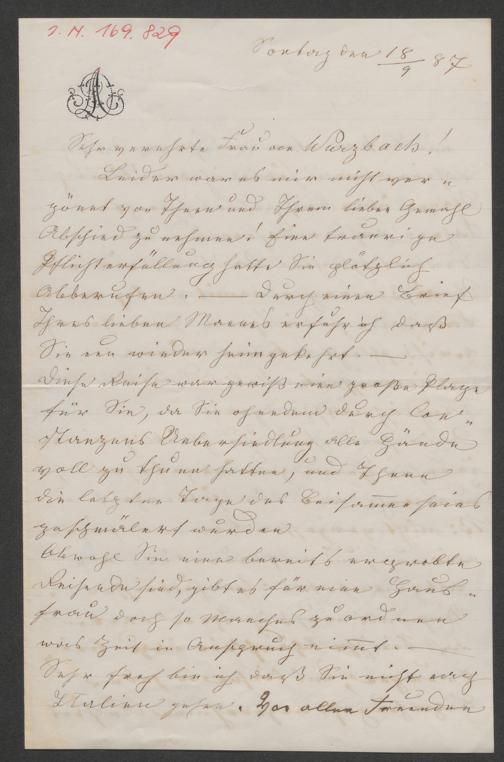 I. N. 169.829
Sontag den 18/9 87
Sehr verehrte Frau von Wurzbach!
Leider war es mir nicht ver„
gönnt von Ihnen und Ihrem lieben Gemahl
Abschied zu nehmen! Eine traurige
Pflichterfüllung hatte Sie plötzlich
abberufen. — Durch einen Brief
Ihres lieben Mannes erfuhr ich daß
Sie nun wieder heimgekehrt. —
Diese Reise war gewiß eine große Plage
für Sie, da Sie ohnedem durch Con„
stanzens Uebersiedlung alle Hände
voll zu thun hatten, und Ihnen
die letzten Tage des Beisammenseins
geschmälert wurden
Obwohl Sie eine bereits erprobte
Reisende sind, gibt es für eine Haus„
frau doch so Manches zu ordnen
was Zeit in Anspruch nimt. —
Sehr froh bin ich daß Sie nicht nach
Italien gehen. Vor allen Freunden